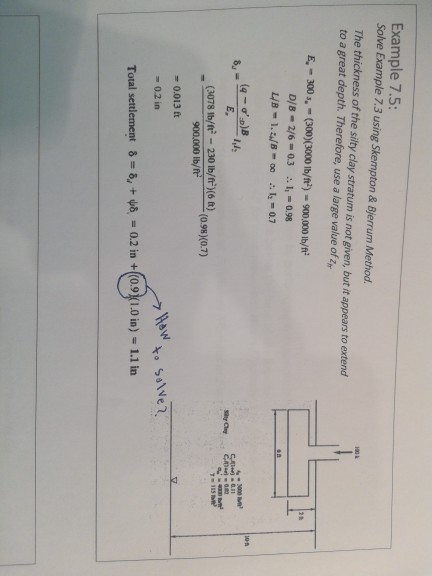 Example 7.5:
Solve Example 7.3 using Skempton & Bjerrum Method.
The thickness of the silty clay stratum is not given, but it appears to extend
to a great depth. Therefore, use a large value of zₕ.
Eᵤ = 300 sᵤ = (300)(3000 lb/ft²) = 900,000 lb/ft²
D/B = 2/6 = 0.3 ∴ I₁ = 0.98
L/B = 1, zₕ/B = ∞ ∴ I₂ = 0.7
δd = (q − σ'zD)B / Eᵤ I₁I₂
= (3078 lb/ft² − 230 lb/ft²)(6 ft) / 900,000 lb/ft² (0.98)(0.7)
= 0.013 ft
= 0.2 in
Total settlement δ = δd + ψδc = 0.2 in + (0.9)(1.0 in) = 1.1 in
How to solve?
100 k
2 ft
6 ft
10 ft
Silty Clay